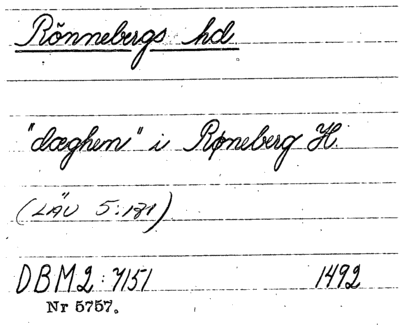 Rönnebergs hd
"dæghen" i Røneberg H.
(LÄU 5:181)
DBM2:7151 1492
Nr 5757.